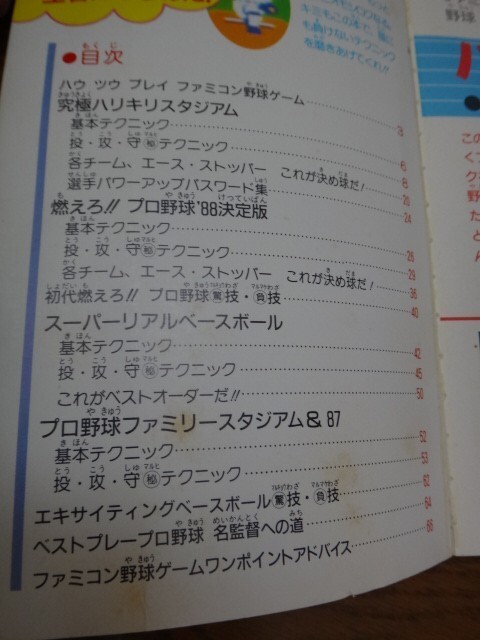 キミもこの本で、誰に
も負けないテクニック
を磨きあげてくれ!!
野球
●目次
もくじ
ハウ ツウ プレイ ファミコン野球ゲーム 3
究極ハリキリスタジアム
基本テクニック 6
投・攻・守㊙テクニック 8
各チーム、エース・ストッパー これが決め球だ! 20
選手パワーアップパスワード集 24
燃えろ!! プロ野球'88決定版
基本テクニック 26
投・攻・守㊙テクニック 29
各チーム、エース・ストッパー これが決め球だ! 36
初代燃えろ!! プロ野球 驚技・負技 40
スーパーリアルベースボール
基本テクニック 42
投・攻・守㊙テクニック 45
これがベストオーダーだ!! 50
プロ野球ファミリースタジアム& 87
基本テクニック 52
投・攻・守㊙テクニック 53
エキサイティングベースボール 驚技・負技 62
ベストプレープロ野球 名監督への道 64
ファミコン野球ゲームワンポイントアドバイス 66